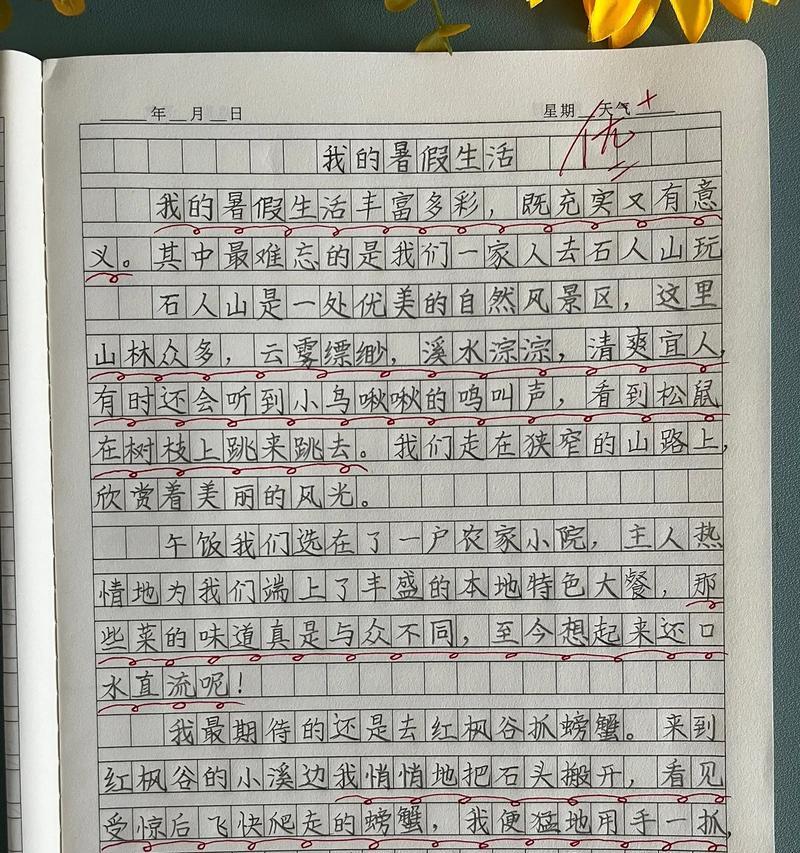 年 月 日 星期 天气
优+
我的暑假生活
我的暑假生活丰富多彩，既充实又有意
义。其中最难忘的是我们一家人去石人山玩
石人山是一处优美的自然风景区，这里
山林众多，云雾缥缈，溪水淙淙，清爽宜人，
有时还会听到小鸟啾啾的鸣叫声，看到松鼠
在树枝上跳来跳去。我们走在狭窄的山路上，
欣赏着美丽的风光。
午饭我们选在了一户农家小院，主人热
情地为我们端上了丰盛的本地特色大餐，那
些菜的味道真是与众不同，至今想起来还口
水直流呢！
我最期待的还是去红枫谷抓螃蟹。来到
红枫谷的小溪边我悄悄地把石头搬开，看见
受惊后飞快爬走的螃蟹，我便猛地用手一抓，